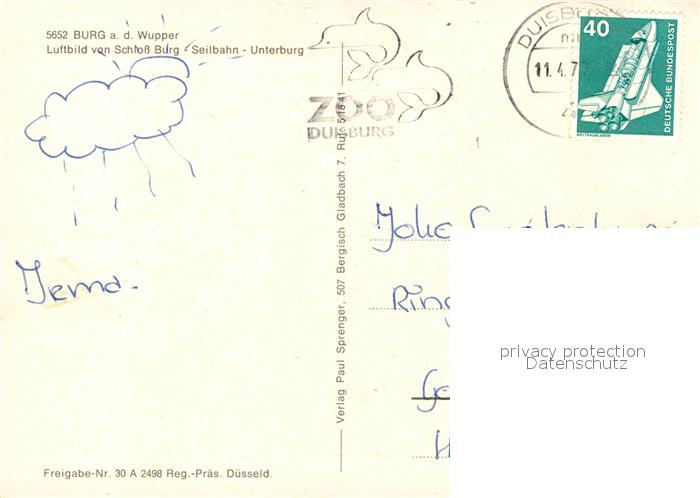 5652 BURG a. d. Wupper
Luftbild von Schloß Burg - Seilbahn - Unterburg
ZOO
DUISBURG
11.4.7
40
DEUTSCHE BUNDESPOST
WELTRAUMLABOR
Verlag Paul Sprenger, 507 Bergisch Gladbach 7, Ruf 5 18 41
Ring
privacy protection
Datenschutz
Freigabe-Nr. 30 A 2498 Reg.-Präs. Düsseld.